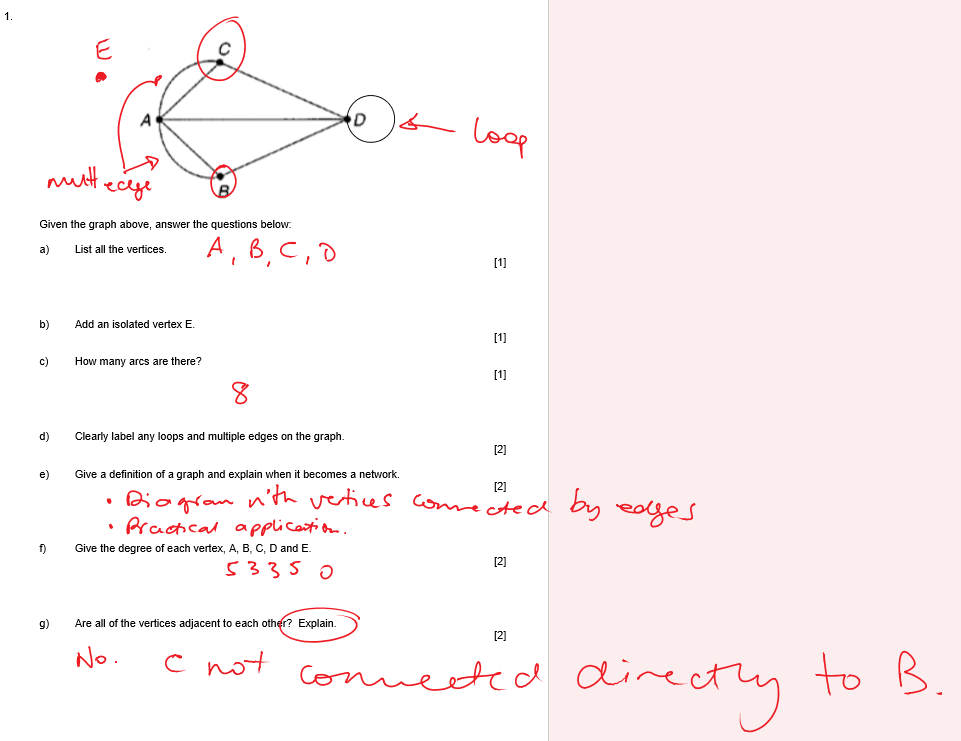 1.
E
C
A
D
loop
B
mult edge
Given the graph above, answer the questions below:
a) List all the vertices. A, B, C, D
[1]
b) Add an isolated vertex E.
[1]
c) How many arcs are there?
[1]
8
d) Clearly label any loops and multiple edges on the graph.
[2]
e) Give a definition of a graph and explain when it becomes a network.
[2]
• Diagram with vertices connected by edges
• Practical application.
f) Give the degree of each vertex, A, B, C, D and E.
[2]
5 3 3 5 0
g) Are all of the vertices adjacent to each other? Explain.
[2]
No. C not connected directly to B.